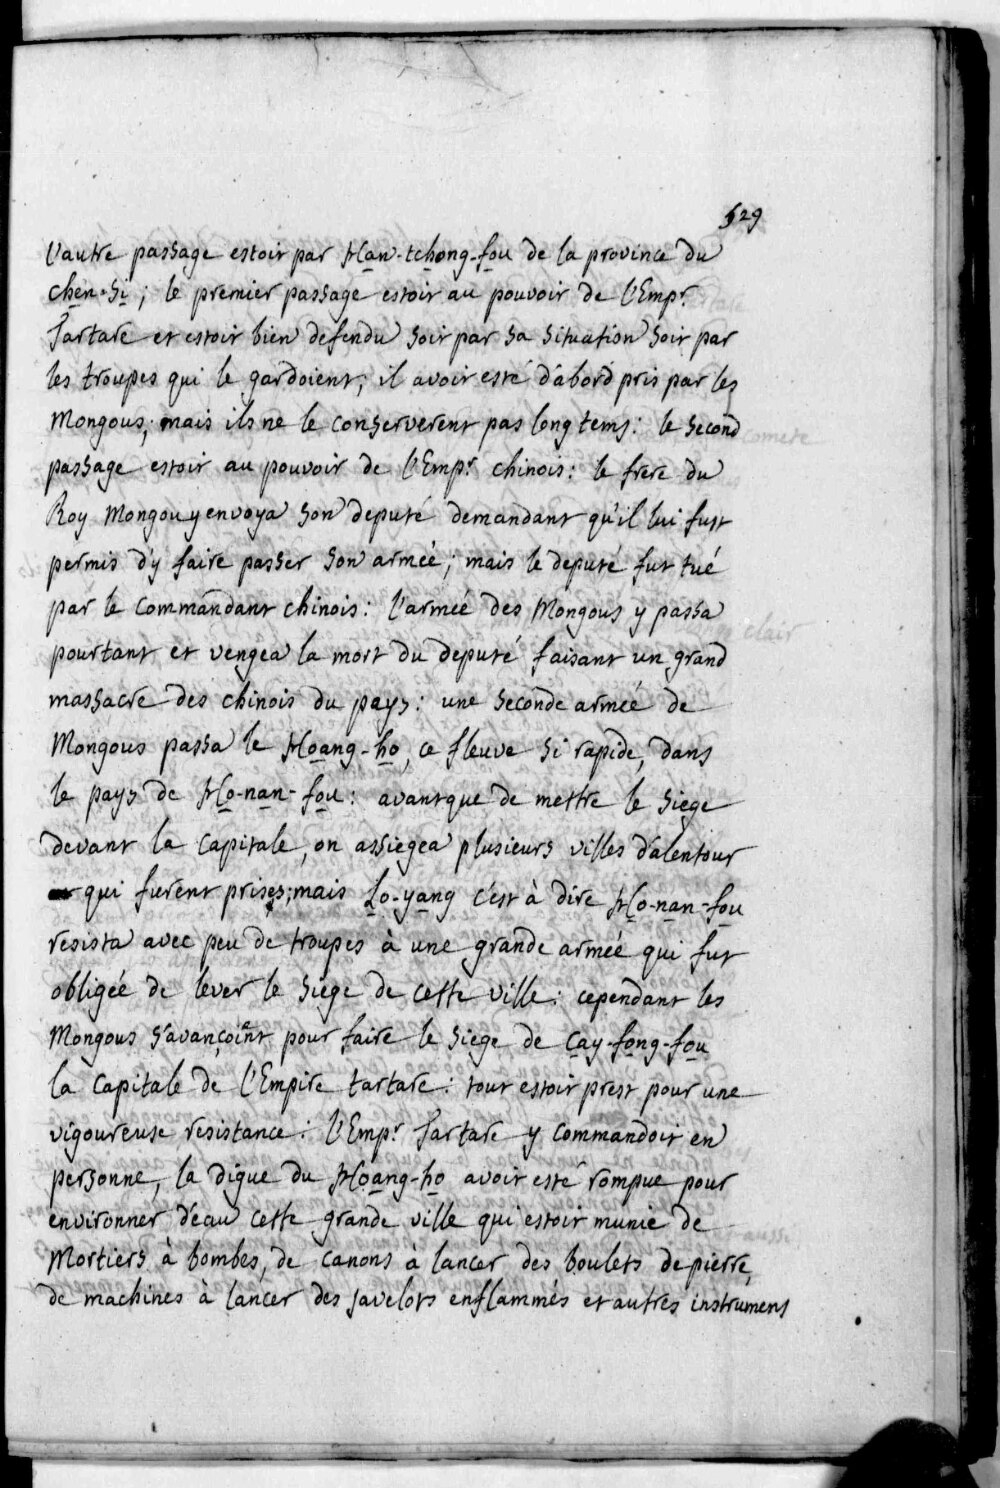 529
l'autre passage estoit par Han-tchong-fou de la province du
chen-si ; le premier passage estoit au pouvoir de l'Empr
Tartare et estoit bien defendu soit par sa situation soit par
les troupes qui le gardoient ; il avoit esté d'abord pris par les
Mongous, mais ils ne le conserverent pas long tems : le second
passage estoit au pouvoir de l'Empr chinois : le frere du
Roy Mongou y envoya son deputé demandant qu'il lui fust
permis d'y faire passer son armée ; mais le deputé fut tué
par le commandant chinois : l'armée des Mongous y passa
pourtant et vengea la mort du deputé faisant un grand
massacre des chinois du pays : une seconde armée de
Mongous passa le Hoang-ho, ce fleuve si rapide, dans
le pays de Ho-nan-fou : avant que de mettre le siege
devant la capitale, on assiegea plusieurs villes d'alentour
qui furent prises ; mais Lo-yang c'est à dire Ho-nan-fou
resista avec peu de troupes à une grande armée qui fut
obligée de lever le siege de cette ville : cependant les
Mongous s'avançoient pour faire le siege de Cay-fong-fou
la capitale de l'Empire tartare : tout estoit prest pour une
vigoureuse resistance : l'Empr Tartare y commandoit en
personne, la digue du Hoang-ho avoit esté rompue pour
environner d'eau cette grande ville qui estoit munie de
Mortiers à bombes, de canons à lancer des boulets de pierre,
de machines à lancer des javelots enflammés et autres instrumens